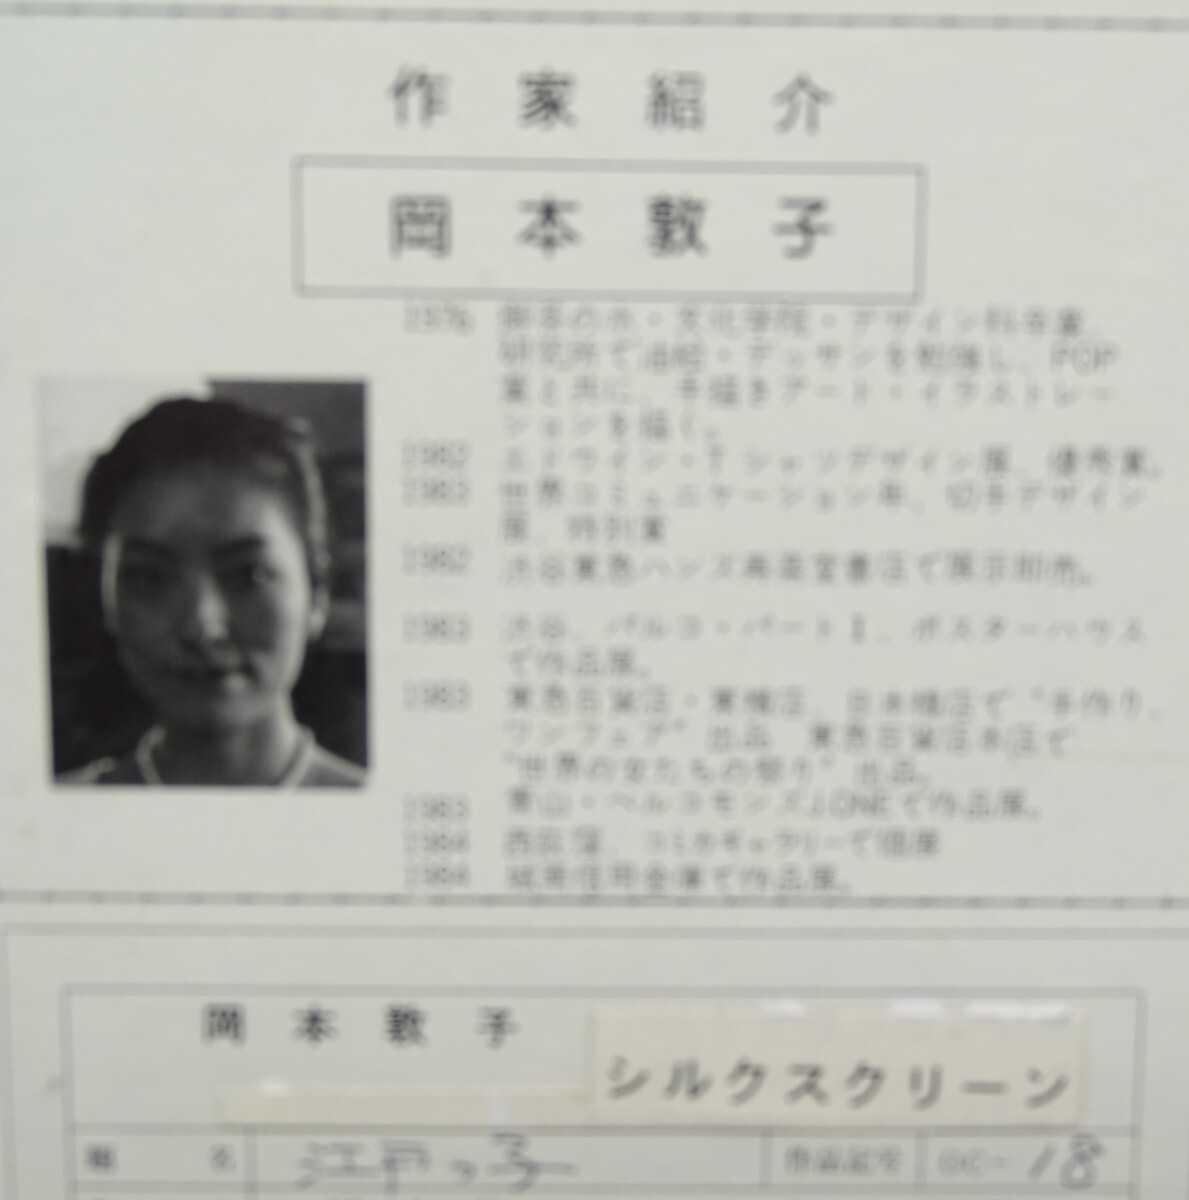 作家紹介
岡本敦子
1976 御茶の水・文化学院・デザイン科卒業。
研究所で油絵・デッサンを勉強し、POP
業と共に、手描きアート・イラストレー
ションを描く。
1982 エドウイン・Tシャツデザイン展、優秀賞。
1983 世界コミュニケーション年、切手デザイン
展、特別賞
1982 渋谷東急ハンズ 書店で展示即売。
1983 渋谷、パルコ・パートⅡ、ポスターハウス
で作品展。
1983 東急百貨店・東横店、日本橋店で“手作り
ワンフェア”出品 東急百貨店本店で
“世界の女たちの祭り”出品。
1983 青山・ベルコモンズJ.ONEで作品展。
1984 西荻窪、コミカギャラリーで個展
1984 信用金庫で作品展。
岡本敦子
シルクスクリーン
題名 江戸っ子 作品記号 OC-18